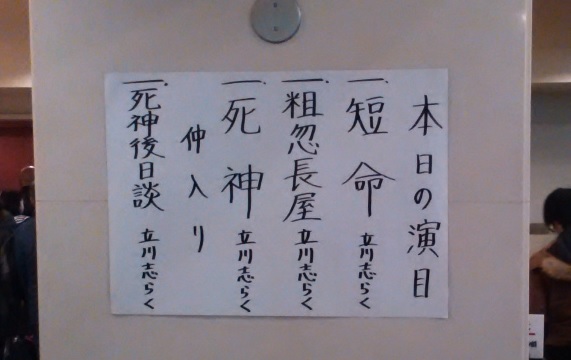 本日の演目
一、短命 立川志らく
一、粗忽長屋 立川志らく
一、死神 立川志らく
仲入り
一、死神後日談 立川志らく